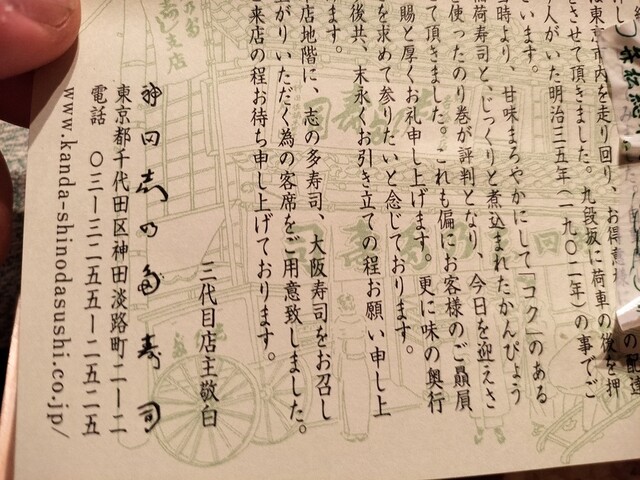 は東京市内を走り回り、お得意様
をさせて頂きました。九段坂に荷車の後を押
人がいた明治三五年(一九〇二年)の事でご
います。
時より、甘味まろやかにして「コク」のある
荷寿司と、じっくりと煮込まれたかんぴょう
を使ったのり巻が評判となり、今日を迎えさ
て頂きました。これも偏にお客様のご贔屓
賜と厚くお礼申し上げます。更に味の奥行
を求めて参りたいと念じております。
後共、末永くお引き立ての程お願い申し上
ます。
店地階に、志の多寿司、大阪寿司をお召し
上がりいただく為の客席をご用意致しました。
ご来店の程お待ち申し上げております。
三代目店主敬白
神田志乃多寿司
東京都千代田区神田淡路町二ー二
電話 〇三ー三二五五ー二五二五
www.kanda-shinodasushi.co.jp/